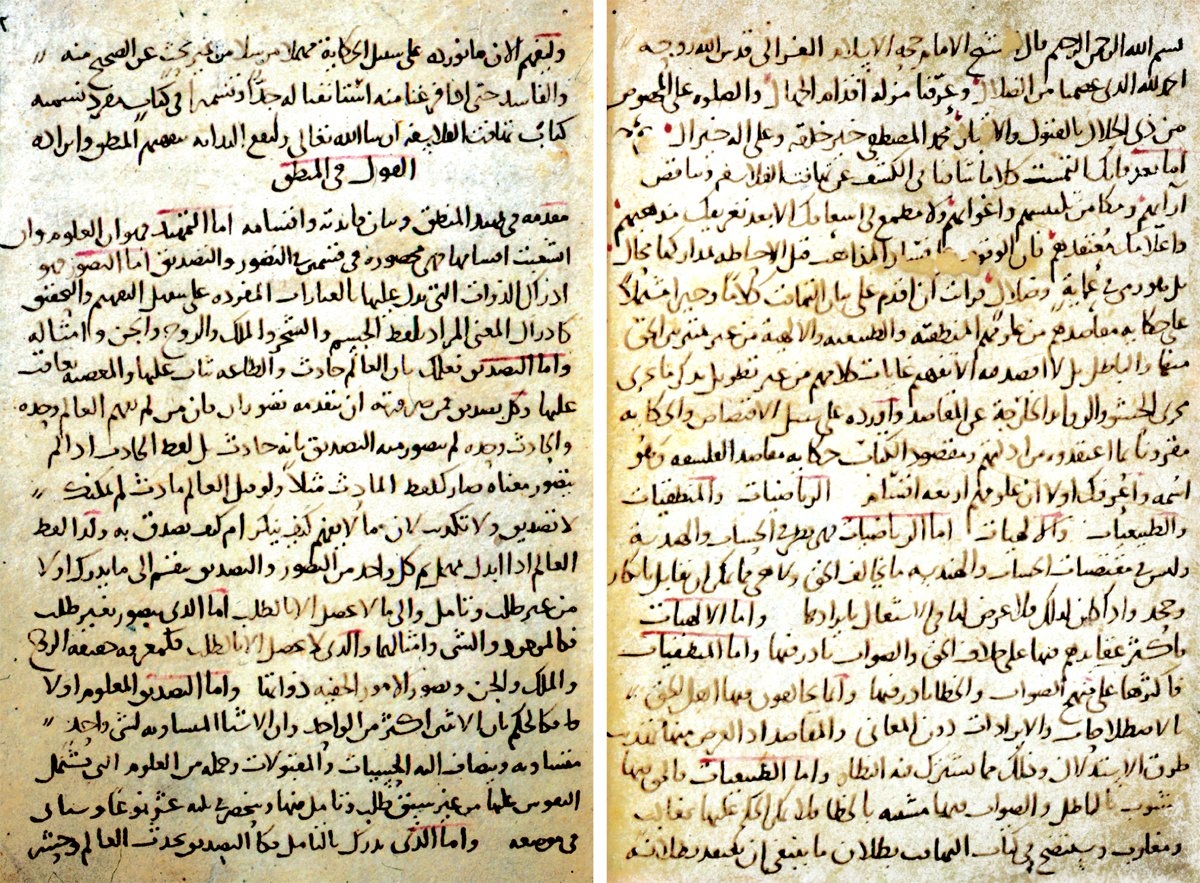 بسم الله الرحمن الرحيم قال شيخ الامام حجة الاسلام الغزالى قدس الله روحه
الحمد لله الذى عصمنا من الضلال وعرفنا مزلة اقدام الجهال والصلوة على المخصوص
من ذى الجلال بالقبول والاقبال محمد المصطفى خير خلقه وعلى اله خير ال
اما بعد فانك التمست كلاما شافيا فى الكشف عن تهافت الفلاسفة وتناقض
آرايهم ومكامن تلبيسهم واغوايهم ولا مطمع فى اسعافك الا بعد تعريفك مذهبهم
واعلامك معتقدهم فان الوقوف على فساد المذاهب قبل الاحاطة بمداركها محال
بل هو رمى فى عماية وضلال فرايت ان اقدم على بيان التهافت كلاما وجيزا مشتملا
على حكاية مقاصدهم من علومهم المنطقية والطبيعية والالهية من غير تمييز بين الحق
منها والباطل بل لا اقصد فيه الا تفهيم غايات كلامهم من غير تطويل بذكر ما يجرى
مجرى الحشو والزوايد الخارجة عن المقاصد واورده على سبيل الاقتصاص والحكاية
مقرونا بما اعتقدوه من ادلتهم ومقصود الكتاب حكاية مقاصد الفلسفة وهو
اسمه واعرفك اولا ان علومهم اربعة اقسام الرياضيات والمنطقيات
والطبيعيات والالهيات اما الرياضيات فهى نظر فى الحساب والهندسة
وليس فى مقتضيات الحساب والهندسة ما يخالف الحق ولا هى مما يمكن ان يقابل بانكار
وجحد واذا كان لذلك فلا غرض لنا فى الاشتغال بايرادها واما الالهيات
فاكثر عقايدهم فيها على خلاف الحق والصواب نادر فيها واما المنطقيات
فاكثرها على منهج الصواب والخطا نادر فيها وانما يخالفون فيها اهل الحق
بالاصطلاحات والايرادات دون المعانى والمقاصد اذ الغرض منها تهذيب
طرق الاستدلال وذلك مما يشترك فيه النظار واما الطبيعيات فالحق فيها
مشوب بالباطل والصواب فيها مشتبه بالخطا فلا يمكن الحكم عليها بغالب
ومغلوب وسيتضح فى كتاب التهافت بطلان ما ينبغى ان يعتقد بطلانه
وليفهم الان ما نورده على سبيل الحكاية مهملا مرسلا من غير بحث عن الصحيح منه
والفاسد حتى اذا فرغنا منه استانفنا له جدا وتشميرا فى كتاب مفرد نسميه
كتاب تهافت الفلاسفة ان شا الله تعالى وليقع البداية بتفهيم المنطق وايراده
القول فى المنطق
مقدمة فى تمهيد المنطق وبيان فايدته واقسامه اما التمهيد فهو ان العلوم وان
انشعبت اقسامها فهى محصورة فى قسمين فى التصور والتصديق اما التصور فهو
ادراك الذوات التى يدل عليها بالعبارات المفردة على سبيل التفهيم والتحقيق
كادراك المعنى المراد بلفظ الجسم والشجر والملك والروح والجن وامثاله
واما التصديق فعلمك بان العالم حادث والطاعة يثاب عليها والمعصية يعاقب
عليها وكل تصديق فمن ضرورته ان يتقدمه تصوران فان من لم يفهم العالم وحده
والحادث وحده لم يتصور منه التصديق بانه حادث بل لفظ الحادث اذا لم
يتصور معناه صار كلفظ المادث مثلا ولو قيل العالم مادث لم يمكنك
لا تصديق ولا تكذيب لان ما لا يفهم كيف ينكر ام كيف يصدق به وكذا لفظ
العالم اذا ابدل بمهمل ثم كل واحد من التصور والتصديق ينقسم الى ما يدرك اولا
من غير طلب وتامل والى ما لا يحصل الا بالطلب اما الذى يتصور بغير طلب
فكالموجود والشى وامثالهما والذى لا يحصل الا بالطلب فكمعرفة حقيقة الروح
والملك والجن وتصور الامور الخفية ذواتها واما التصديق المعلوم اولا
فكالحكم بان الاثنين اكثر من الواحد وان الاشيا المساوية لشى واحد
متساوية ويضاف اليه الحسيات والمقبولات وجملة من العلوم التى يشتمل
النفوس عليها من غير سبق طلب وتامل فيها وينحصر فى ثلثة عشر نوعا وسياتى
فى موضعه واما الذى يدرك بالتامل فكالتصديق بحدث العالم وحشر